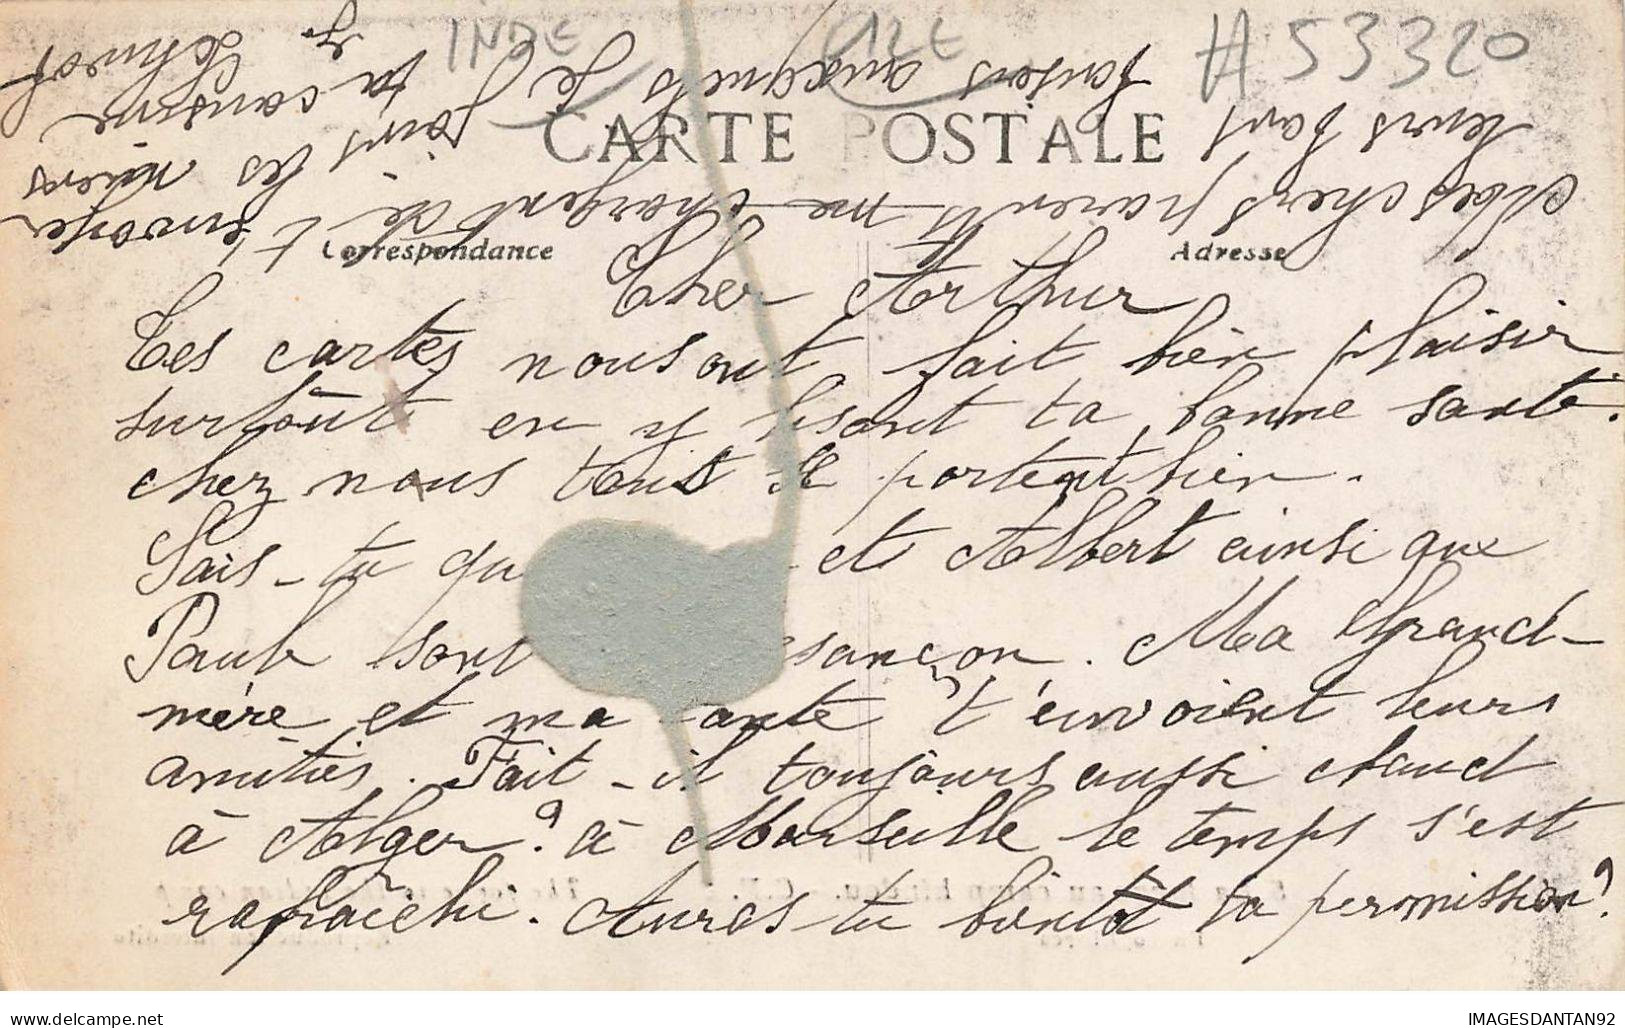 INDE
A 53320
CARTE POSTALE
Correspondance
Adresse
Cher Arthur
Tes cartes nous ont fait bien plaisir
surtout en y lisant ta bonne santé.
chez nous tous se portent bien.
Sais-tu qu et Albert ainsi que
Paul sont sançon. Ma Grand-
mère et ma tante t'envoient leurs
amitiés. Fait-il toujours aussi chaud
à Alger? à Marseille le temps s'est
rafraichi. Auras tu bientôt ta permission?
Mes chers parents me chargent de t'envoyer
leurs bons baisers auxquels je joins les miens
ta cousine
IMAGESDANTAN92